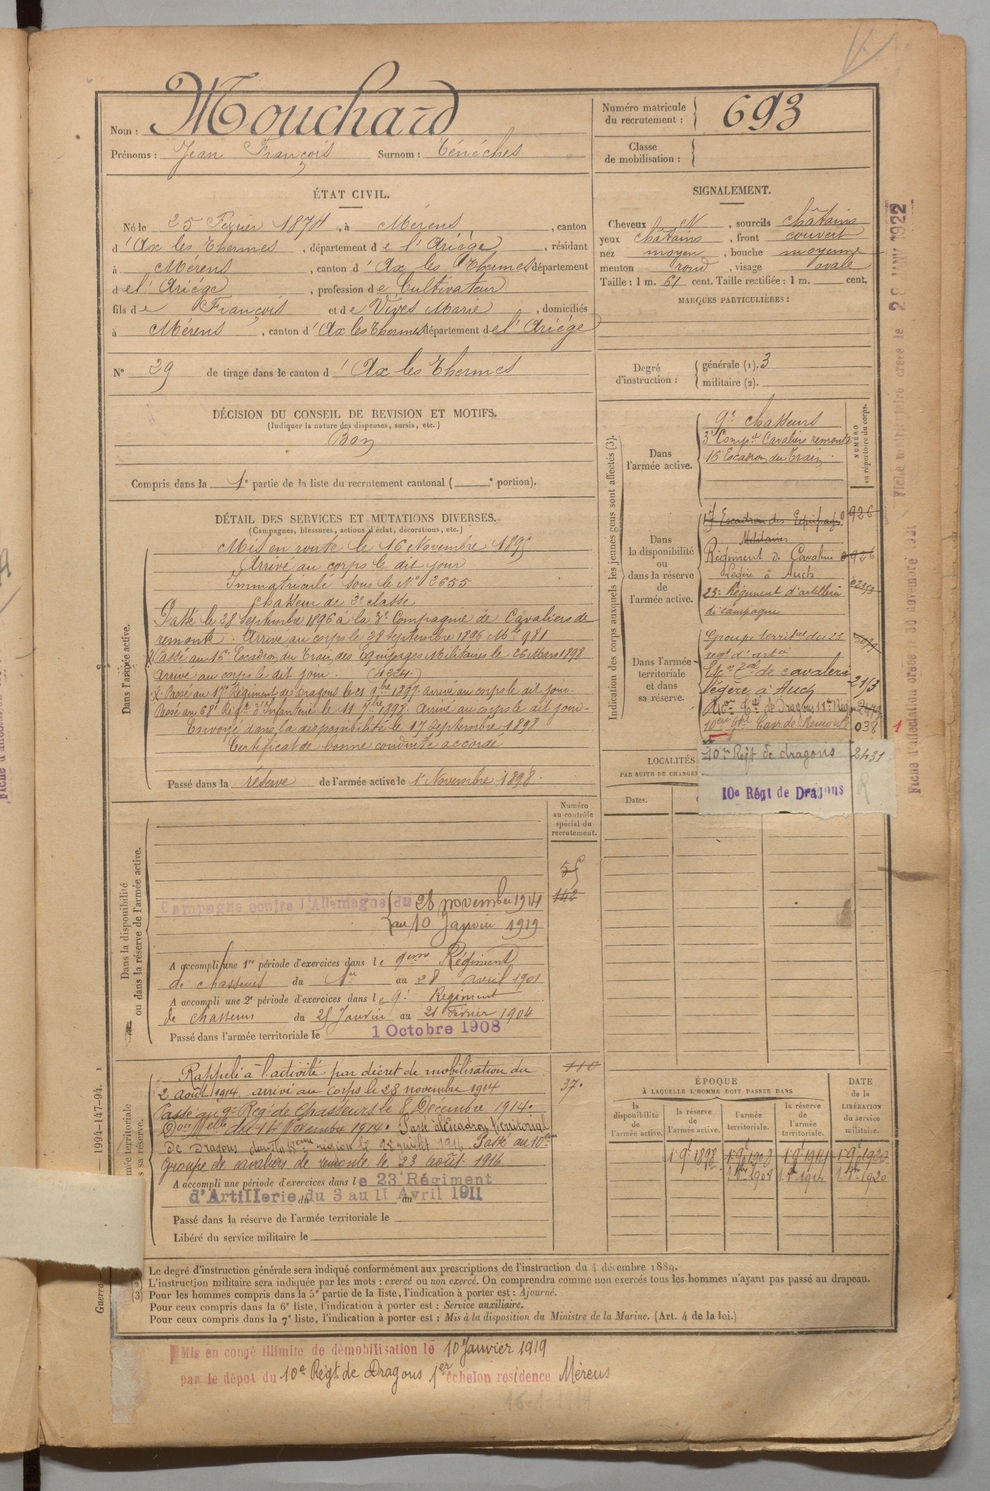 Nom : Mouchard
Prénoms : Jean François Surnom : Ténèches
Numéro matricule du recrutement : 693
Classe de mobilisation :
ÉTAT CIVIL.
Né le 25 Février 1874, à Mérens, canton
d'Ax les Thermes, département de l'Ariège, résidant
à Mérens, canton d'Ax les Thermes département
de l'Ariège, profession de Cultivateur
fils de François et de Vives Marie, domiciliés
à Mérens, canton d'Ax les Thermes département de l'Ariège
N° 29 de tirage dans le canton d'Ax les Thermes
SIGNALEMENT.
Cheveux N, sourcils châtains
yeux châtains, front couvert
nez moyen, bouche moyenne
menton rond, visage ovale
Taille : 1 m. 61 cent. Taille rectifiée : 1 m. cent.
MARQUES PARTICULIÈRES :
Degré d'instruction : générale (1). 3
militaire (2).
DÉCISION DU CONSEIL DE REVISION ET MOTIFS.
(Indiquer la nature des dispenses, sursis, etc.)
Bon
Compris dans la 1e partie de la liste du recrutement cantonal ( e portion).
DÉTAIL DES SERVICES ET MUTATIONS DIVERSES.
(Campagnes, blessures, actions d'éclat, décorations, etc.)
Dans l'armée active.
Mis en route le 16 Novembre 1895
Arrivé au corps le dit jour
Immatriculé sous le N° 3655
Chasseur de 2e classe
Passé le 28 Septembre 1896 à la 3e Compagnie de Cavaliers de
remonte. Arrivé au corps le 28 Septembre 1896 Mle 981
Passé au 16e Escadron du Train des Equipages Militaires le 26 Mars 1898
arrivé au corps le dit jour.
Passé au 17e Régiment de Dragons le 1897 arrivé au corps le dit jour
Passé au 68e Régt d'Infanterie le 11 1898 Arrivé au corps le dit jour
Envoyé dans la disponibilité le 17 Septembre 1898
Certificat de bonne conduite accordé
Passé dans la réserve de l'armée active le 1er Novembre 1898
Indication des corps auxquels les jeunes gens sont affectés (3).
NUMÉRO au répertoire du corps.
Dans l'armée active.
9e chasseurs
3e Compie Cavaliers remonte
16 Escadron du Train
Dans la disponibilité ou dans la réserve de l'armée active.
17 Escadron des Equipages 926
Militaires
Régiment de Cavalerie 926
Légère à Auch
23e Régiment d'artillerie
de campagne
Dans l'armée territoriale et dans sa réserve.
Groupe territ. du 23
regt d'art
de cavalerie
légère à Auch
de Dragons
Cav. de Remonte 038
10me Régt de dragons 2431
10e Régt de Dragons
LOCALITÉS
PAR SUITE DE CHANGEM
Dates.
Dans la disponibilité ou dans la réserve de l'armée active.
Numéro au contrôle spécial du recrutement.
Campagne contre l'Allemagne du 28 novembre 1914
au 10 Janvier 1919
A accompli une 1re période d'exercices dans le 9eme Régiment
de chasseurs du 1er au 28 avril 1901
A accompli une 2e période d'exercices dans le 9e Régiment
de chasseurs du 25 Janvier au 21 Février 1904
Passé dans l'armée territoriale le 1 Octobre 1908
Rappelé à l'activité par décret de mobilisation du
2 août 1914. arrivé au corps le 28 novembre 1914
Passé au 9e Rég. de Chasseurs le 8 Décembre 1914.
Passé Escadron Territorial
de Dragons Passé au 10eme
Groupe de cavaliers de remonte le 23 août 1916
37.
A accompli une période d'exercices dans le 23 Régiment
d'Artillerie du 3 au 11 Avril 1911
Passé dans la réserve de l'armée territoriale le
Libéré du service militaire le
ÉPOQUE
À LAQUELLE L'HOMME DOIT PASSER DANS
la disponibilité de l'armée active.
la réserve de l'armée active.
l'armée territoriale.
la réserve de l'armée territoriale.
DATE de la LIBÉRATION du service militaire.
1 9e 1898 1 9e 1908 1 9e 1914 1 9e 1920
1908 1914 1920
Le degré d'instruction générale sera indiqué conformément aux prescriptions de l'instruction du 4 décembre 1889.
L'instruction militaire sera indiquée par les mots : exercé ou non exercé. On comprendra comme non exercés tous les hommes n'ayant pas passé au drapeau.
(3) Pour les hommes compris dans la 5e partie de la liste, l'indication à porter est : Ajourné.
Pour ceux compris dans la 6e liste, l'indication à porter est : Service auxiliaire.
Pour ceux compris dans la 7e liste, l'indication à porter est : Mis à la disposition du Ministre de la Marine. (Art. 4 de la loi.)
Mis en congé illimité de démobilisation le 10 Janvier 1919
par le dépot du 10e Régt de Dragons 1er échelon residence Mérens
1994-147-94.
Fiche matriculaire créée le 20 JANV 1922
Fiche d'affectation créée le 30 novembre 1921